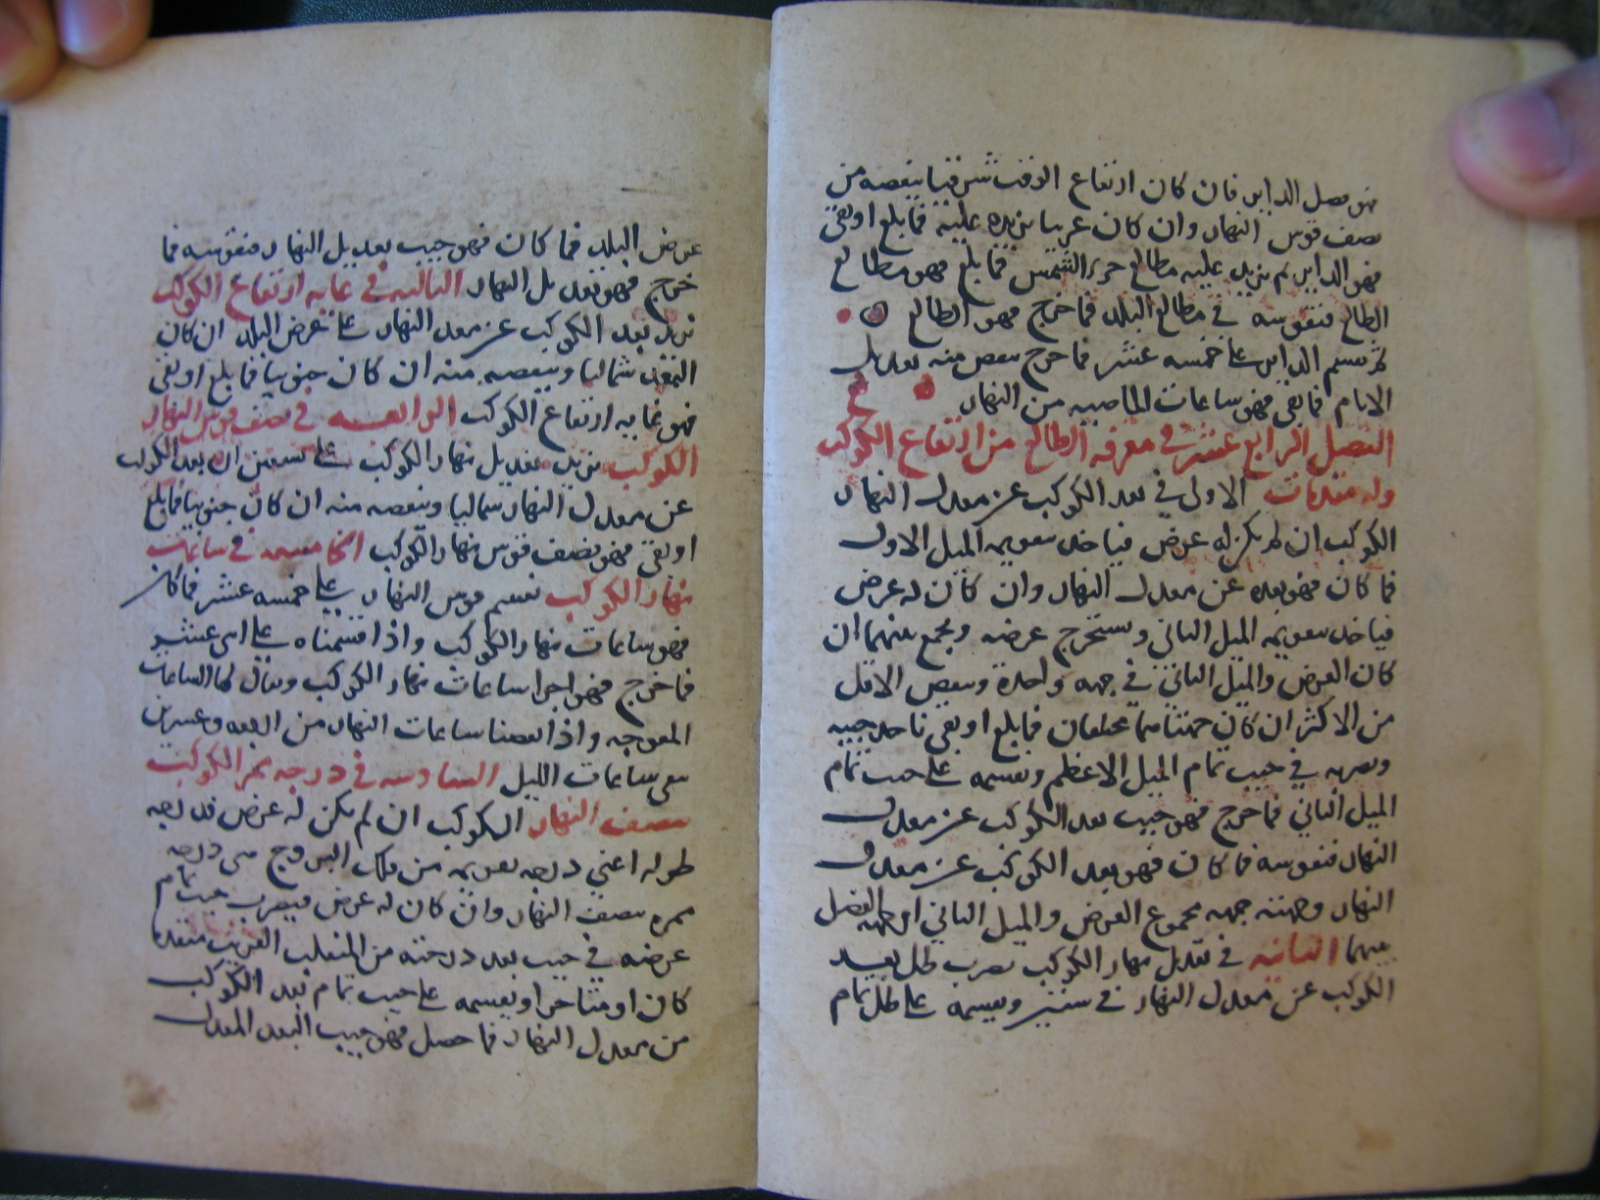 فهو فضل الداير فان كان ارتفاع الوقت شرقيا ينقصه من
نصف قوس النهار وان كان غربيا نزيده عليه فما بلغ او بقي
فهو الداير ثم نزيد عليه مطالع جزء الشمس فما بلغ فهو مطالع
الطالع فنقوسه في مطالع البلد فما خرج فهو الطالع
ثم نقسم الداير على خمسه عشر فما خرج ننقص منه تعديل
الايام فما بقي فهو ساعات الماضيه من النهار
الفصل الرابع عشر في معرفه الطالع من ارتفاع الكوكب
وله مقدمات الاولى في بعد الكوكب عن معدل النهار
الكوكب ان لم يكن له عرض فياخذ بتقويمه الميل الاول
فما كان فهو بعده عن معدل النهار وان كان له عرض
فياخذ بتقويمه الميل الثاني ونستخرج عرضه ونجمع بينهما ان
كان العرض والميل الثاني في جهه واحدة وننقص الاقل
من الاكثر ان كان جهتاهما مختلفان فما بلغ او بقي ناخذ جيبه
ونضربه في جيب تمام الميل الاعظم ونقسمه على جيب تمام
الميل الثاني فما خرج فهو جيب بعد الكوكب عن معدل
النهار فنقوسه فما كان فهو بعد الكوكب عن معدل
النهار وجهته جهه مجموع العرض والميل الثاني او جهه الفضل
بينهما الثانيه في تعديل نهار الكوكب نضرب ظل بعد
الكوكب عن معدل النهار في ستين ونقسمه على ظل تمام
عرض البلد فما كان فهو جيب تعديل النهار فنقوسه فما
خرج فهو تعديل النهار الثالثه في غايه ارتفاع الكوكب
نزيد بعد الكوكب عن معدل النهار على عرض البلد ان كان
البعد شماليا وننقصه منه ان كان جنوبيا فما بلغ او بقي
فهو غايه ارتفاع الكوكب الرابعه في نصف قوس النهار
الكوكب نزيد تعديل نهار الكوكب على تسعين ان بعد الكوكب
عن معدل النهار شماليا وننقصه منه ان كان جنوبيا فما بلغ
او بقي فهو نصف قوس نهار الكوكب الخامسه في ساعات
نهار الكوكب نقسم قوس النهار على خمسه عشر فما كان
فهو ساعات نهار الكوكب واذا قسمناه على اثى عشر
فما خرج فهو اجزا ساعات نهار الكوكب ويقال لها الساعات
المعوجه واذا نقصنا ساعات النهار من اربعه وعشرين
بقي ساعات الليل السادسه في درجه ممر الكوكب
بنصف النهار الكوكب ان لم يكن له عرض فدرجه
طوله اعني درجه تقويمه من فلك البروج هي درجه
ممره بنصف النهار وان كان له عرض فيضرب جيب تمام
عرضه في جيب بعد درجته من المنقلب القريب متقدما
كان او متاخرا ونقسمه على جيب تمام بعد الكوكب
من معدل النهار فما حصل فهو جيب البعد المعدل